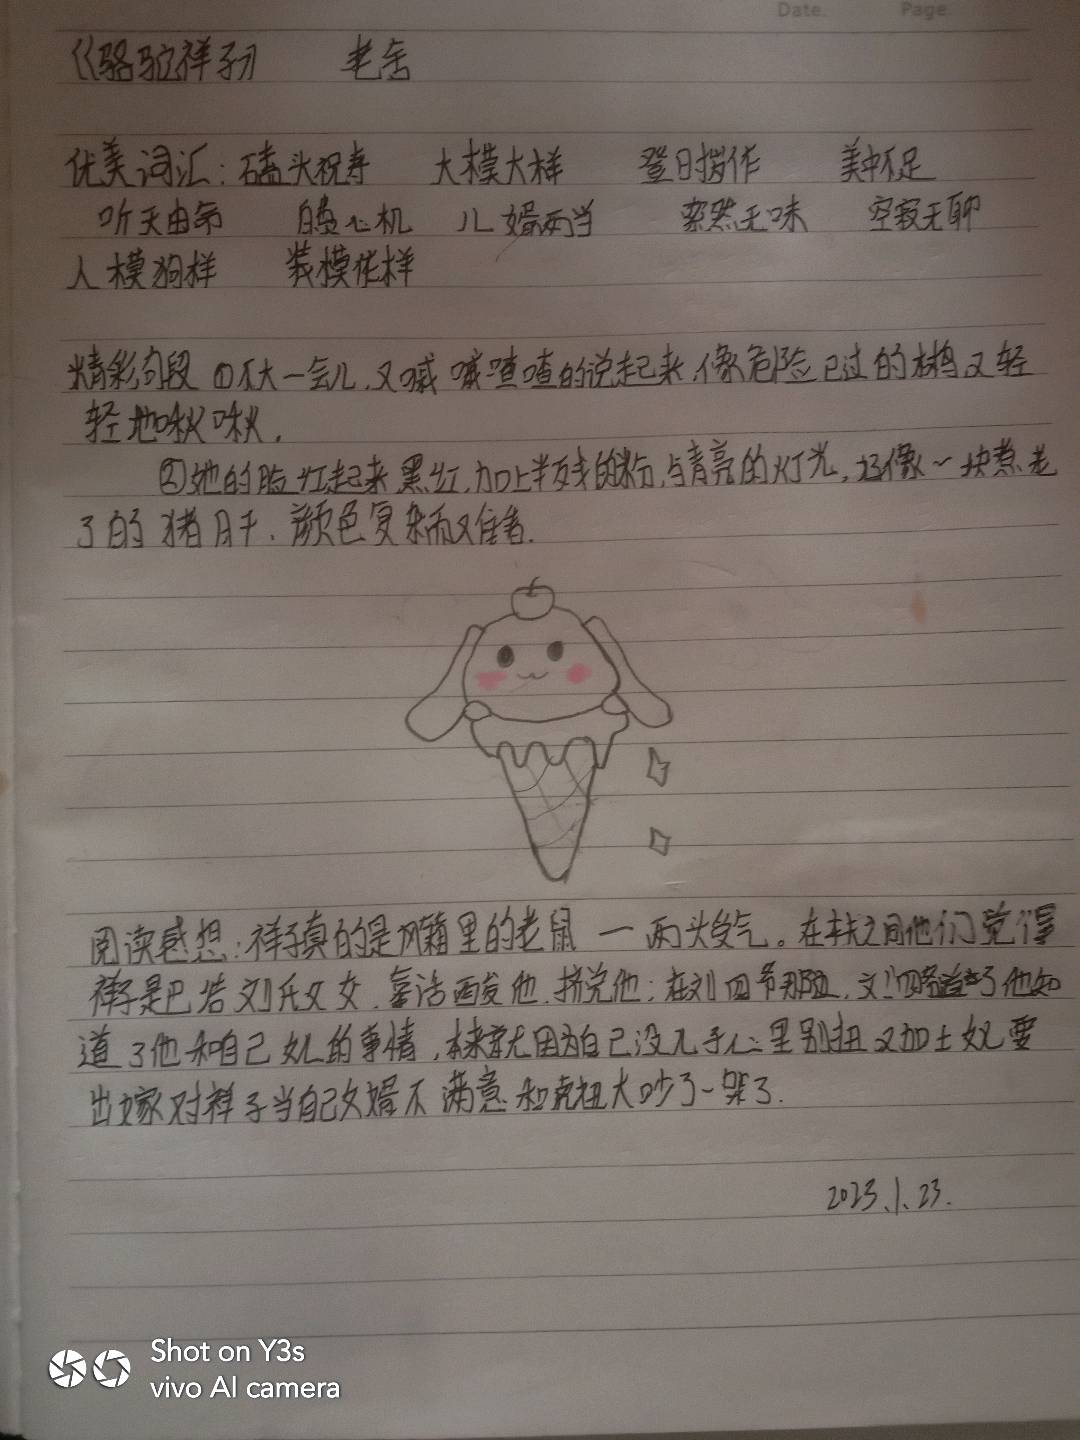 Date. Page
《骆驼祥子》 老舍
优美词汇:磕头祝寿 大模大样 登日揖作 美中不足
听天由命 白费心机 儿婿两当 索然无味 空寂无聊
人模狗样 装模作样
精彩句段 ①不大一会儿,又嘁嘁喳喳的说起来,像危险已过的林鸦又轻
轻地啾啾.
②她的脸红起来,黑红,加上半残的粉,与青亮的灯光,好像一块煮老
了的猪肝,颜色复杂而又难看.
阅读感想:祥子真的是风箱里的老鼠一两头受气。在车夫之间他们觉得
祥子是巴结刘氏父女,拿话酸他,挤兑他;在刘四爷那边,刘四爷知道了他知
道了他和自己女儿的事情,本来就因为自己没儿子心里别扭又加上女儿要
出嫁对祥子当自己女婿不满意和虎妞大吵了一架了.
2023.1.23.
Shot on Y3s
vivo AI camera